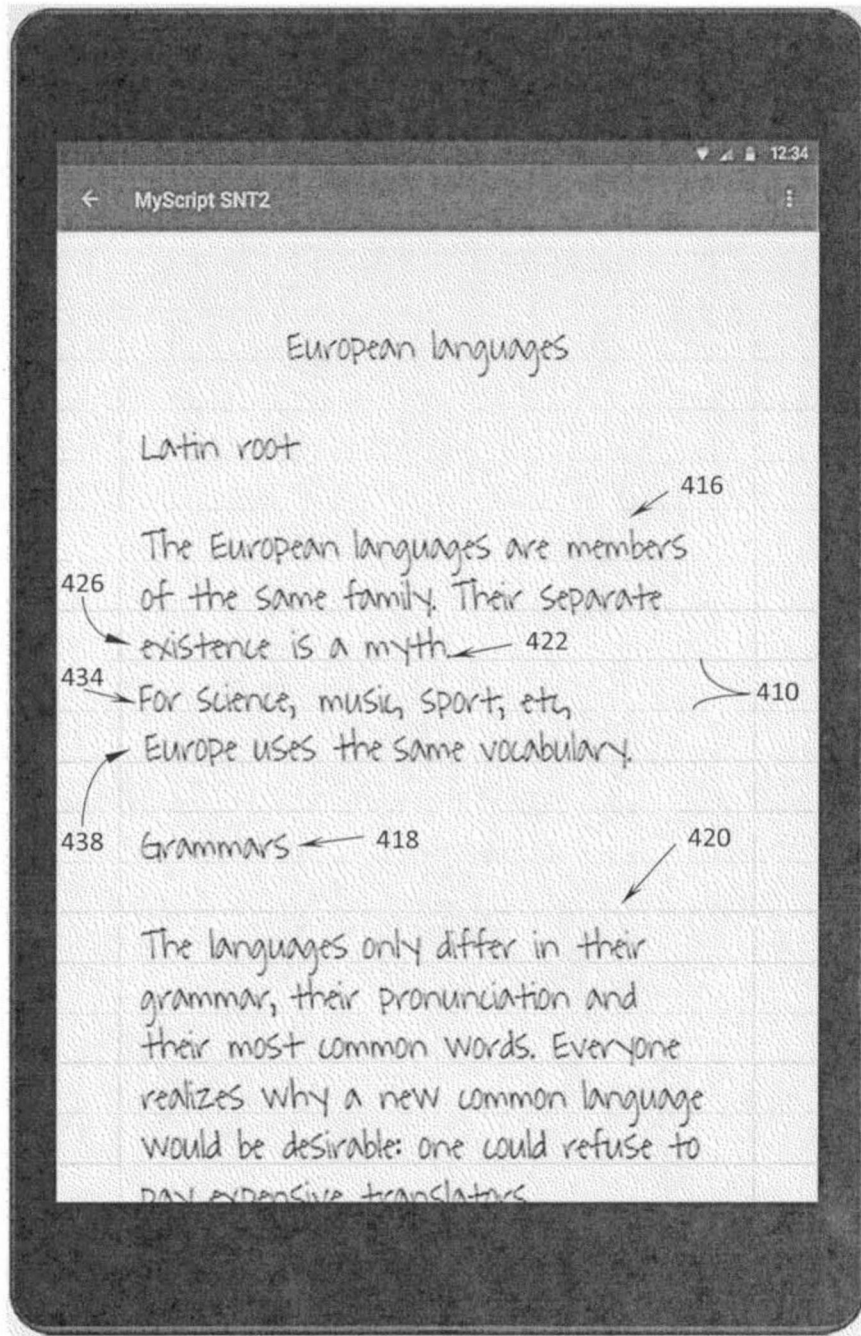 12:34
MyScript SNT2
European languages
Latin root
416
The European languages are members
426
of the same family. Their separate
existence is a myth. 422
434
For science, music, sport, etc, 410
Europe uses the same vocabulary.
438 Grammars 418 420
The languages only differ in their
grammar, their pronunciation and
their most common words. Everyone
realizes why a new common language
would be desirable: one could refuse to
pay expensive translators